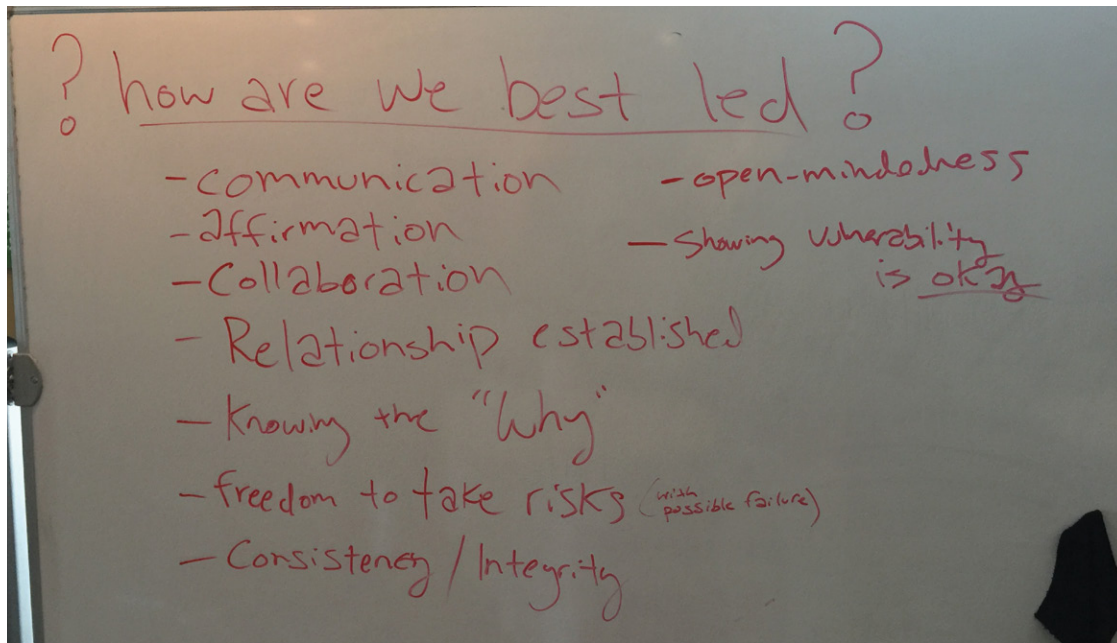 ? how are we best led ?
- communication
- affirmation
- Collaboration
- Relationship established
- Knowing the "Why"
- freedom to take risks (with possible failure)
- Consistency / Integrity
- open-mindedness
- Showing vulnerability
is okay